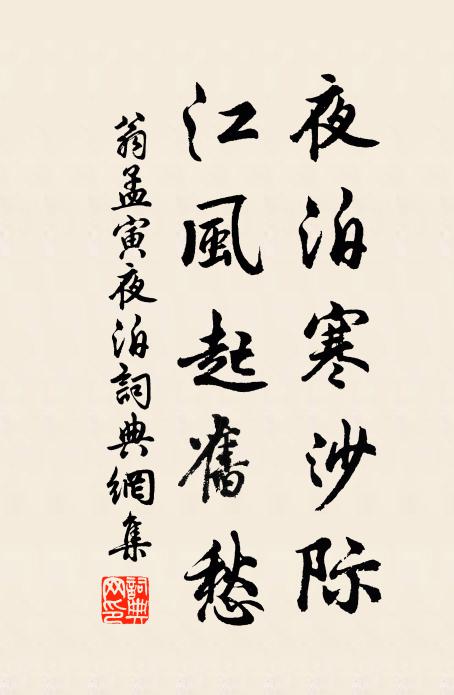 夜泊寒沙际
江風起舊愁
翁孟寅夜泊詞典網集
詞典
网印